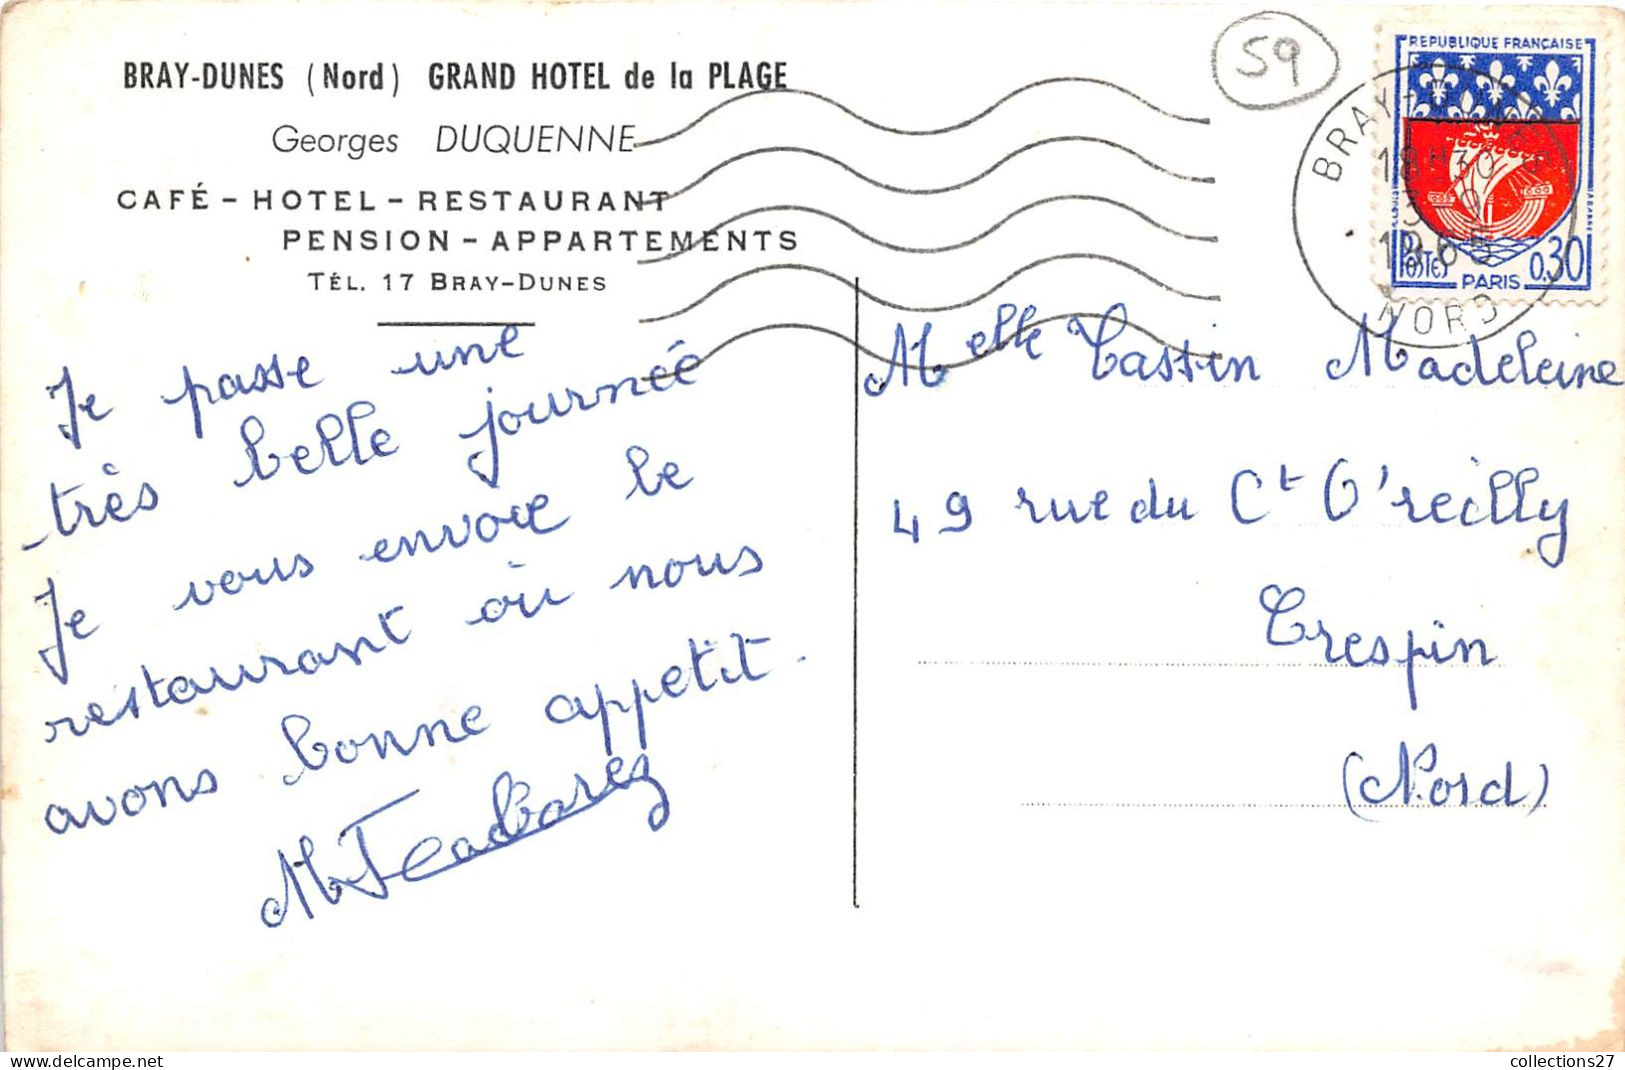 BRAY-DUNES (Nord) GRAND HOTEL de la PLAGE
Georges DUQUENNE
CAFÉ - HOTEL - RESTAURANT
PENSION - APPARTEMENTS
TÉL. 17 BRAY-DUNES
Je passe une
très belle journée
Je vous envoie le
restaurant où nous
avons bonne appetit.
59
REPUBLIQUE FRANÇAISE
POSTES
0,30
PARIS
BRAY-DUNES
18H30
1965
NORD
Melle Tassin Madeleine
49 rue du Ct O'reilly
Crespin
(Nord)
collections27